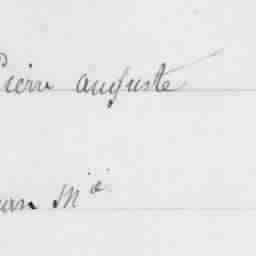 Pierre auguste
an Mie